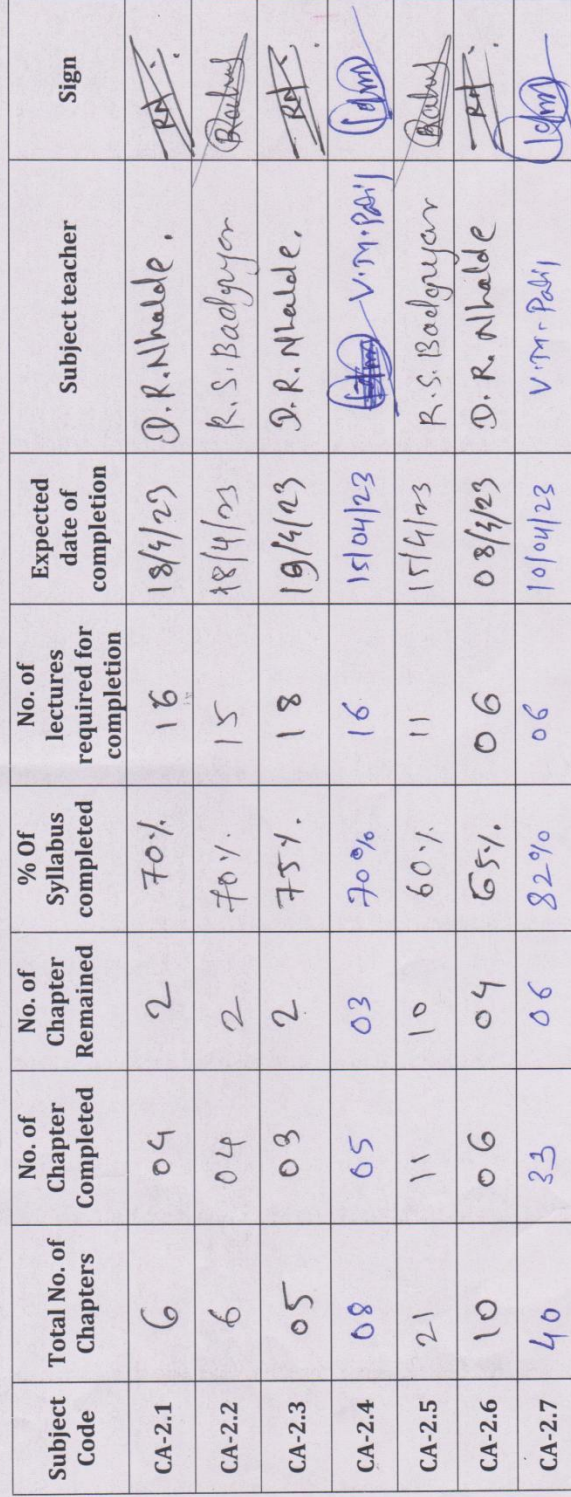 Subject Code Total No. of Chapters No. of Chapter Completed No. of Chapter Remained % Of Syllabus completed No. of lectures required for completion Expected date of completion Subject teacher Sign
CA-2.1 6 04 2 70% 16 18/4/23 D.R.Nhalde.
CA-2.2 6 04 2 70% 15 18/4/23 R.S.Badgujar
CA-2.3 05 03 2 75% 18 19/4/23 D.R.Nhalde.
CA-2.4 08 05 03 70% 16 15/04/23 V.M.Patil
CA-2.5 21 11 10 60% 11 15/4/23 R.S.Badgujar
CA-2.6 10 06 04 65% 06 08/4/23 D.R.Nhalde
CA-2.7 40 33 06 82% 06 10/04/23 V.M.Patil